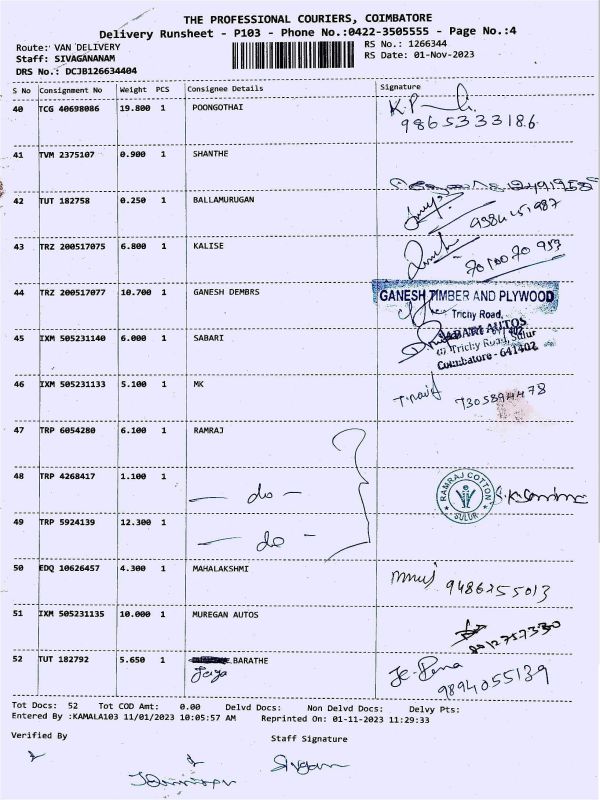 THE PROFESSIONAL COURIERS, COIMBATORE
Delivery Runsheet - P103 - Phone No.:0422-3505555 - Page No.:4
Route: VAN DELIVERY RS No.: 1266344
Staff: SIVAGANANAM RS Date: 01-Nov-2023
DRS No.: DCJB126634404
S No Consignment No Weight PCS Consignee Details Signature
40 TCG 40698086 19.800 1 POONGOTHAI K.P
9865333186
41 TVM 2375107 0.900 1 SHANTHE
42 TUT 182758 0.250 1 BALLAMURUGAN
9384151987
43 TRZ 200517075 6.800 1 KALISE
7010070953
44 TRZ 200517077 10.700 1 GANESH DEMBRS GANESH TIMBER AND PLYWOOD
Trichy Road,
45 IXM 505231140 6.000 1 SABARI SABARI AUTOS
Trichy Road, Sulur
Coimbatore - 641402
46 IXM 505231133 5.100 1 MK
7305894478
47 TRP 6054280 6.100 1 RAMRAJ
48 TRP 4268417 1.100 1 — do — RAMRAJ COTTON SULUR
49 TRP 5924139 12.300 1 — do —
50 EDQ 10626457 4.300 1 MAHALAKSHMI
9486255013
51 IXM 505231135 10.000 1 MUREGAN AUTOS
52 TUT 182792 5.650 1 BARATHE
Jeya
9894055139
Tot Docs: 52 Tot COD Amt: 0.00 Delvd Docs: Non Delvd Docs: Delvy Pts:
Entered By :KAMALA103 11/01/2023 10:05:57 AM Reprinted On: 01-11-2023 11:29:33
Verified By Staff Signature